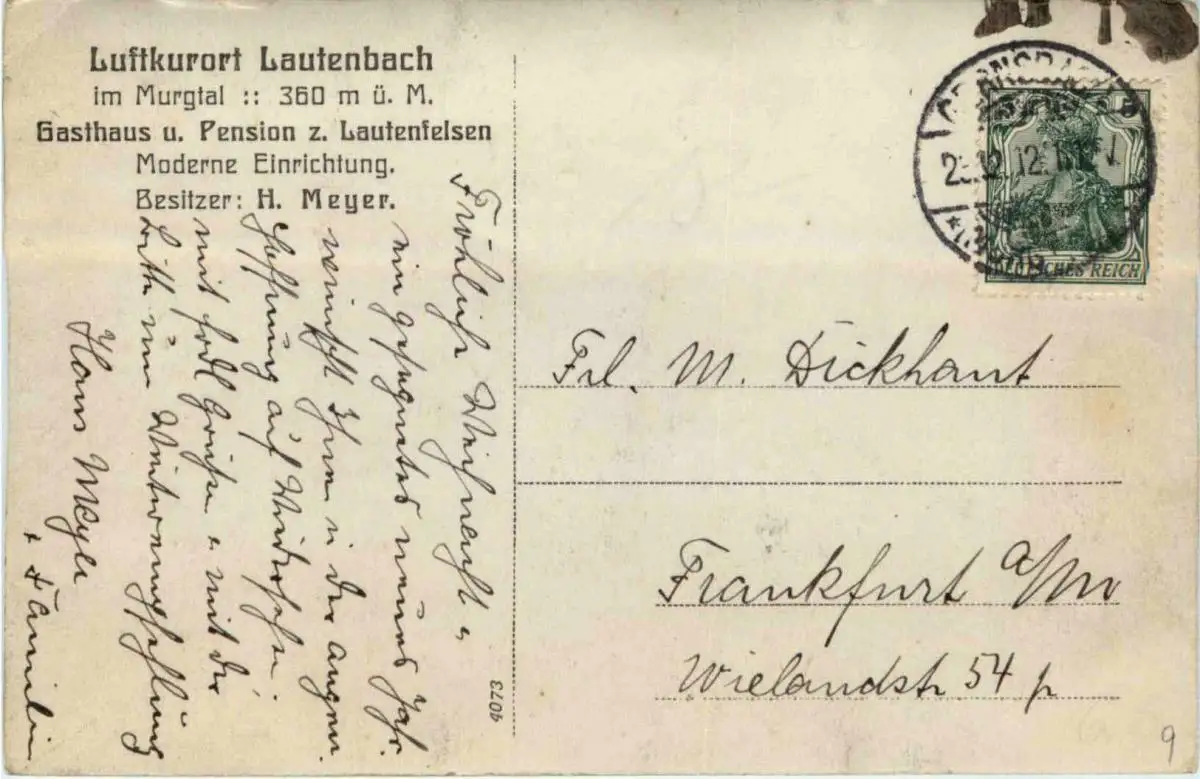 Luftkurort Lautenbach
im Murgtal :: 360 m ü. M.
Gasthaus u. Pension z. Lautenfelsen
Moderne Einrichtung.
Besitzer: H. Meyer.
Fröhliche Weihnacht u
ein gesegnetes neues Jahr.
wünscht Ihnen in der angen.
Hoffnung auf Wiedersehen.
mit frdl Grüßen u mit der
Bitte um Weiterempfehlung
Hans Meyer
+ Familie
4073
DEUTSCHES REICH
5
12.12
Frl. M. Dickhaut
Frankfurt a/M
Wielandstr 54 p
9